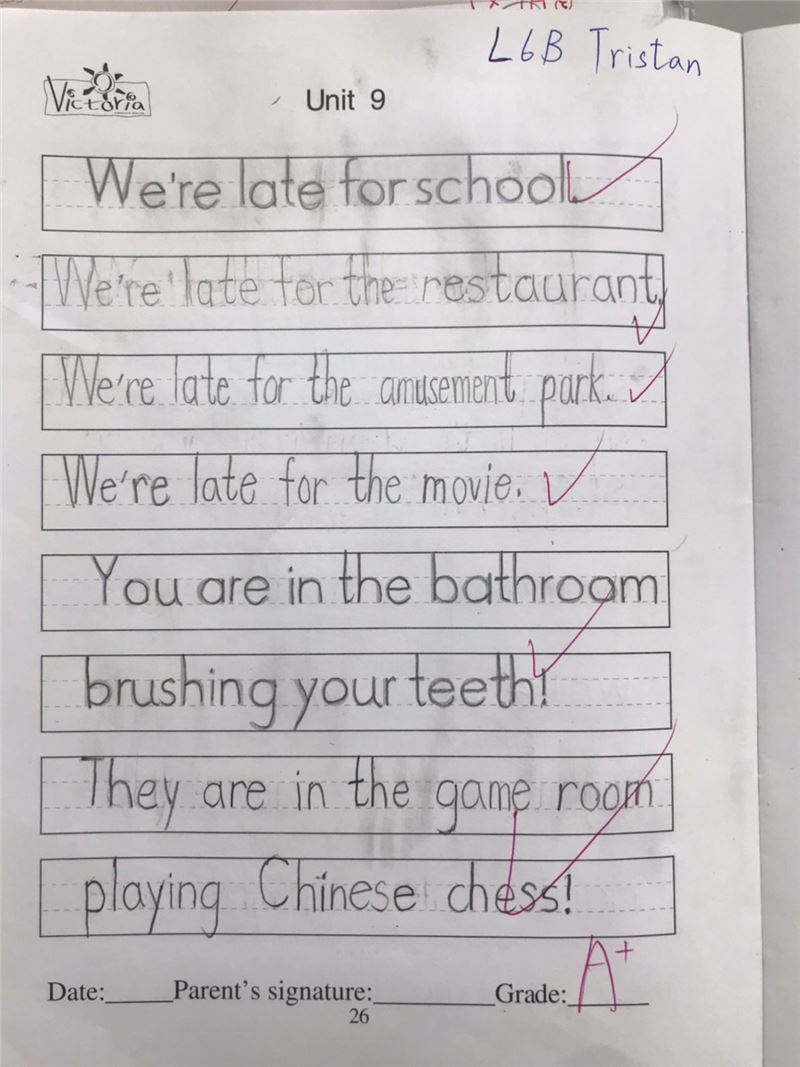 L6B Tristan
Victoria
Unit 9
We're late for school.
We're late for the restaurant.
We're late for the amusement park.
We're late for the movie.
You are in the bathroom
brushing your teeth!
They are in the game room
playing Chinese chess!
Date: Parent's signature: Grade: A+
26